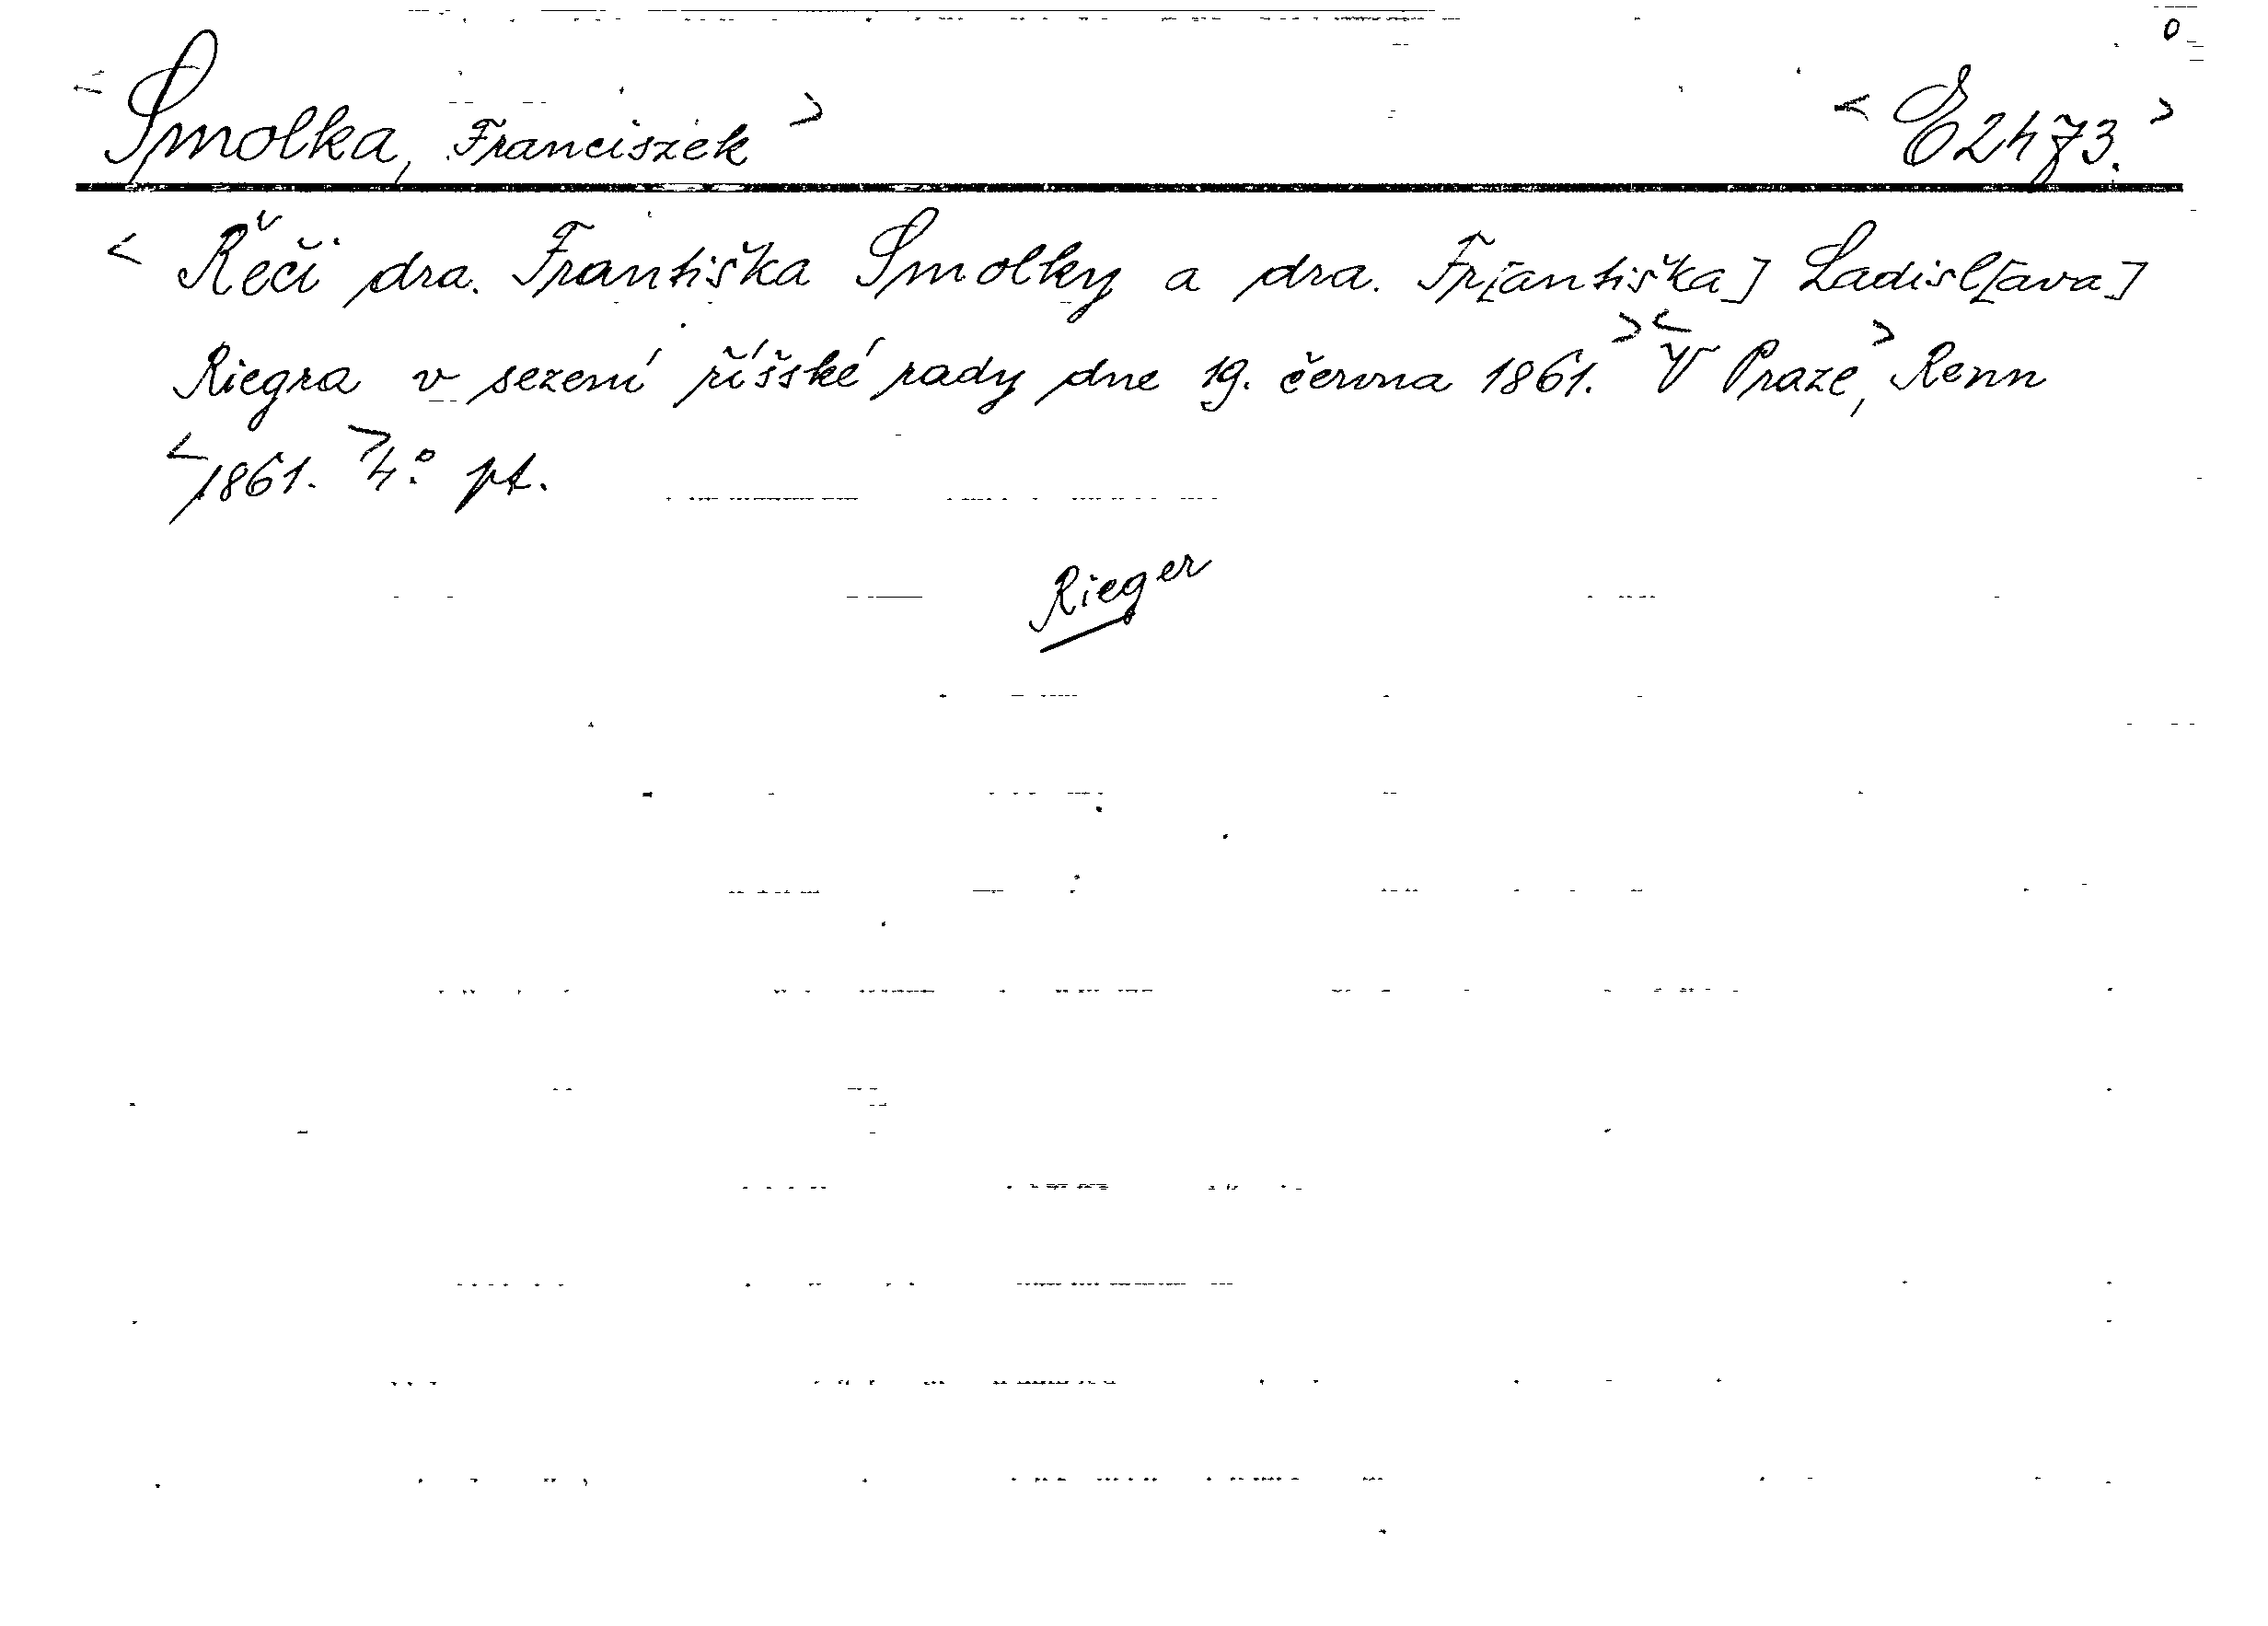 < Smolka, Franciszek > < E 2473. >
< Řeči dra. Františka Smolky a dra. Fr[antiška] Ladisl[ava]
Riegra v sezení říšské rady dne 19. června 1861. > < V Praze, > Renn
< 1861. > 4.° pt.
Rieger